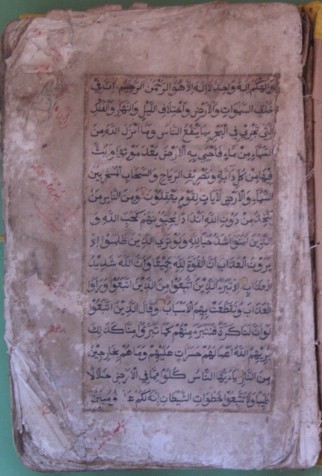 والهكم اله واحد لا اله الا هو الرحمن الرحيم ان في
خلق السموات والارض واختلاف الليل والنهار والفلك
التي تجري في البحر بما ينفع الناس وما انزل الله من
السماء من ماء فاحيى به الارض بعد موتها وبث
فيها من كل دابة وتصريف الرياح والسحاب المسخر بين
السماء والارض لايات لقوم يعقلون ومن الناس من
يتخذ من دون الله اندادا يحبونهم كحب الله و
الذين امنوا اشد حبا لله ولو يرى الذين ظلموا اذ
يرون العذاب ان القوة لله جميعا وان الله شديد
العذاب اذ تبرا الذين اتبعوا من الذين اتبعوا وراوا
العذاب وتقطعت بهم الاسباب وقال الذين اتبعوا
لو ان لنا كرة فنتبرا منهم كما تبرؤا منا كذلك
يريهم الله اعمالهم حسرات عليهم وما هم بخارجين
من النار يا ايها الناس كلوا مما في الارض حلالا
طيبا ولا تتبعوا خطوات الشيطان انه لكم عدو مبين